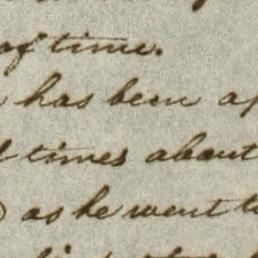 of time.
has been
times about
as he went to